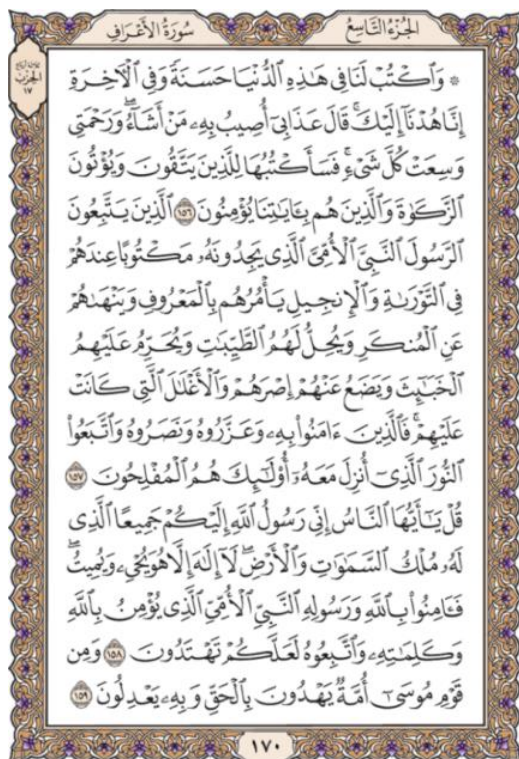 الجُزْءُ التَّاسِعُ
سُورَةُ الأَعْرَافِ
الحِزْبُ
١٧
۞ وَٱكْتُبْ لَنَا فِى هَٰذِهِ ٱلدُّنْيَا حَسَنَةً وَفِى ٱلْءَاخِرَةِ
إِنَّا هُدْنَآ إِلَيْكَ ۚ قَالَ عَذَابِىٓ أُصِيبُ بِهِۦ مَنْ أَشَآءُ ۖ وَرَحْمَتِى
وَسِعَتْ كُلَّ شَىْءٍ ۚ فَسَأَكْتُبُهَا لِلَّذِينَ يَتَّقُونَ وَيُؤْتُونَ
ٱلزَّكَوٰةَ وَٱلَّذِينَ هُم بِـَٔايَٰتِنَا يُؤْمِنُونَ ١٥٦ ٱلَّذِينَ يَتَّبِعُونَ
ٱلرَّسُولَ ٱلنَّبِىَّ ٱلْأُمِّىَّ ٱلَّذِى يَجِدُونَهُۥ مَكْتُوبًا عِندَهُمْ
فِى ٱلتَّوْرَىٰةِ وَٱلْإِنجِيلِ يَأْمُرُهُم بِٱلْمَعْرُوفِ وَيَنْهَىٰهُمْ
عَنِ ٱلْمُنكَرِ وَيُحِلُّ لَهُمُ ٱلطَّيِّبَٰتِ وَيُحَرِّمُ عَلَيْهِمُ
ٱلْخَبَٰٓئِثَ وَيَضَعُ عَنْهُمْ إِصْرَهُمْ وَٱلْأَغْلَٰلَ ٱلَّتِى كَانَتْ
عَلَيْهِمْ ۚ فَٱلَّذِينَ ءَامَنُوا۟ بِهِۦ وَعَزَّرُوهُ وَنَصَرُوهُ وَٱتَّبَعُوا۟
ٱلنُّورَ ٱلَّذِىٓ أُنزِلَ مَعَهُۥٓ ۙ أُو۟لَٰٓئِكَ هُمُ ٱلْمُفْلِحُونَ ١٥٧
قُلْ يَٰٓأَيُّهَا ٱلنَّاسُ إِنِّى رَسُولُ ٱللَّهِ إِلَيْكُمْ جَمِيعًا ٱلَّذِى
لَهُۥ مُلْكُ ٱلسَّمَٰوَٰتِ وَٱلْأَرْضِ ۖ لَآ إِلَٰهَ إِلَّا هُوَ يُحْىِۦ وَيُمِيتُ ۖ
فَـَٔامِنُوا۟ بِٱللَّهِ وَرَسُولِهِ ٱلنَّبِىِّ ٱلْأُمِّىِّ ٱلَّذِى يُؤْمِنُ بِٱللَّهِ
وَكَلِمَٰتِهِۦ وَٱتَّبِعُوهُ لَعَلَّكُمْ تَهْتَدُونَ ١٥٨ وَمِن
قَوْمِ مُوسَىٰٓ أُمَّةٌ يَهْدُونَ بِٱلْحَقِّ وَبِهِۦ يَعْدِلُونَ ١٥٩
١٧٠